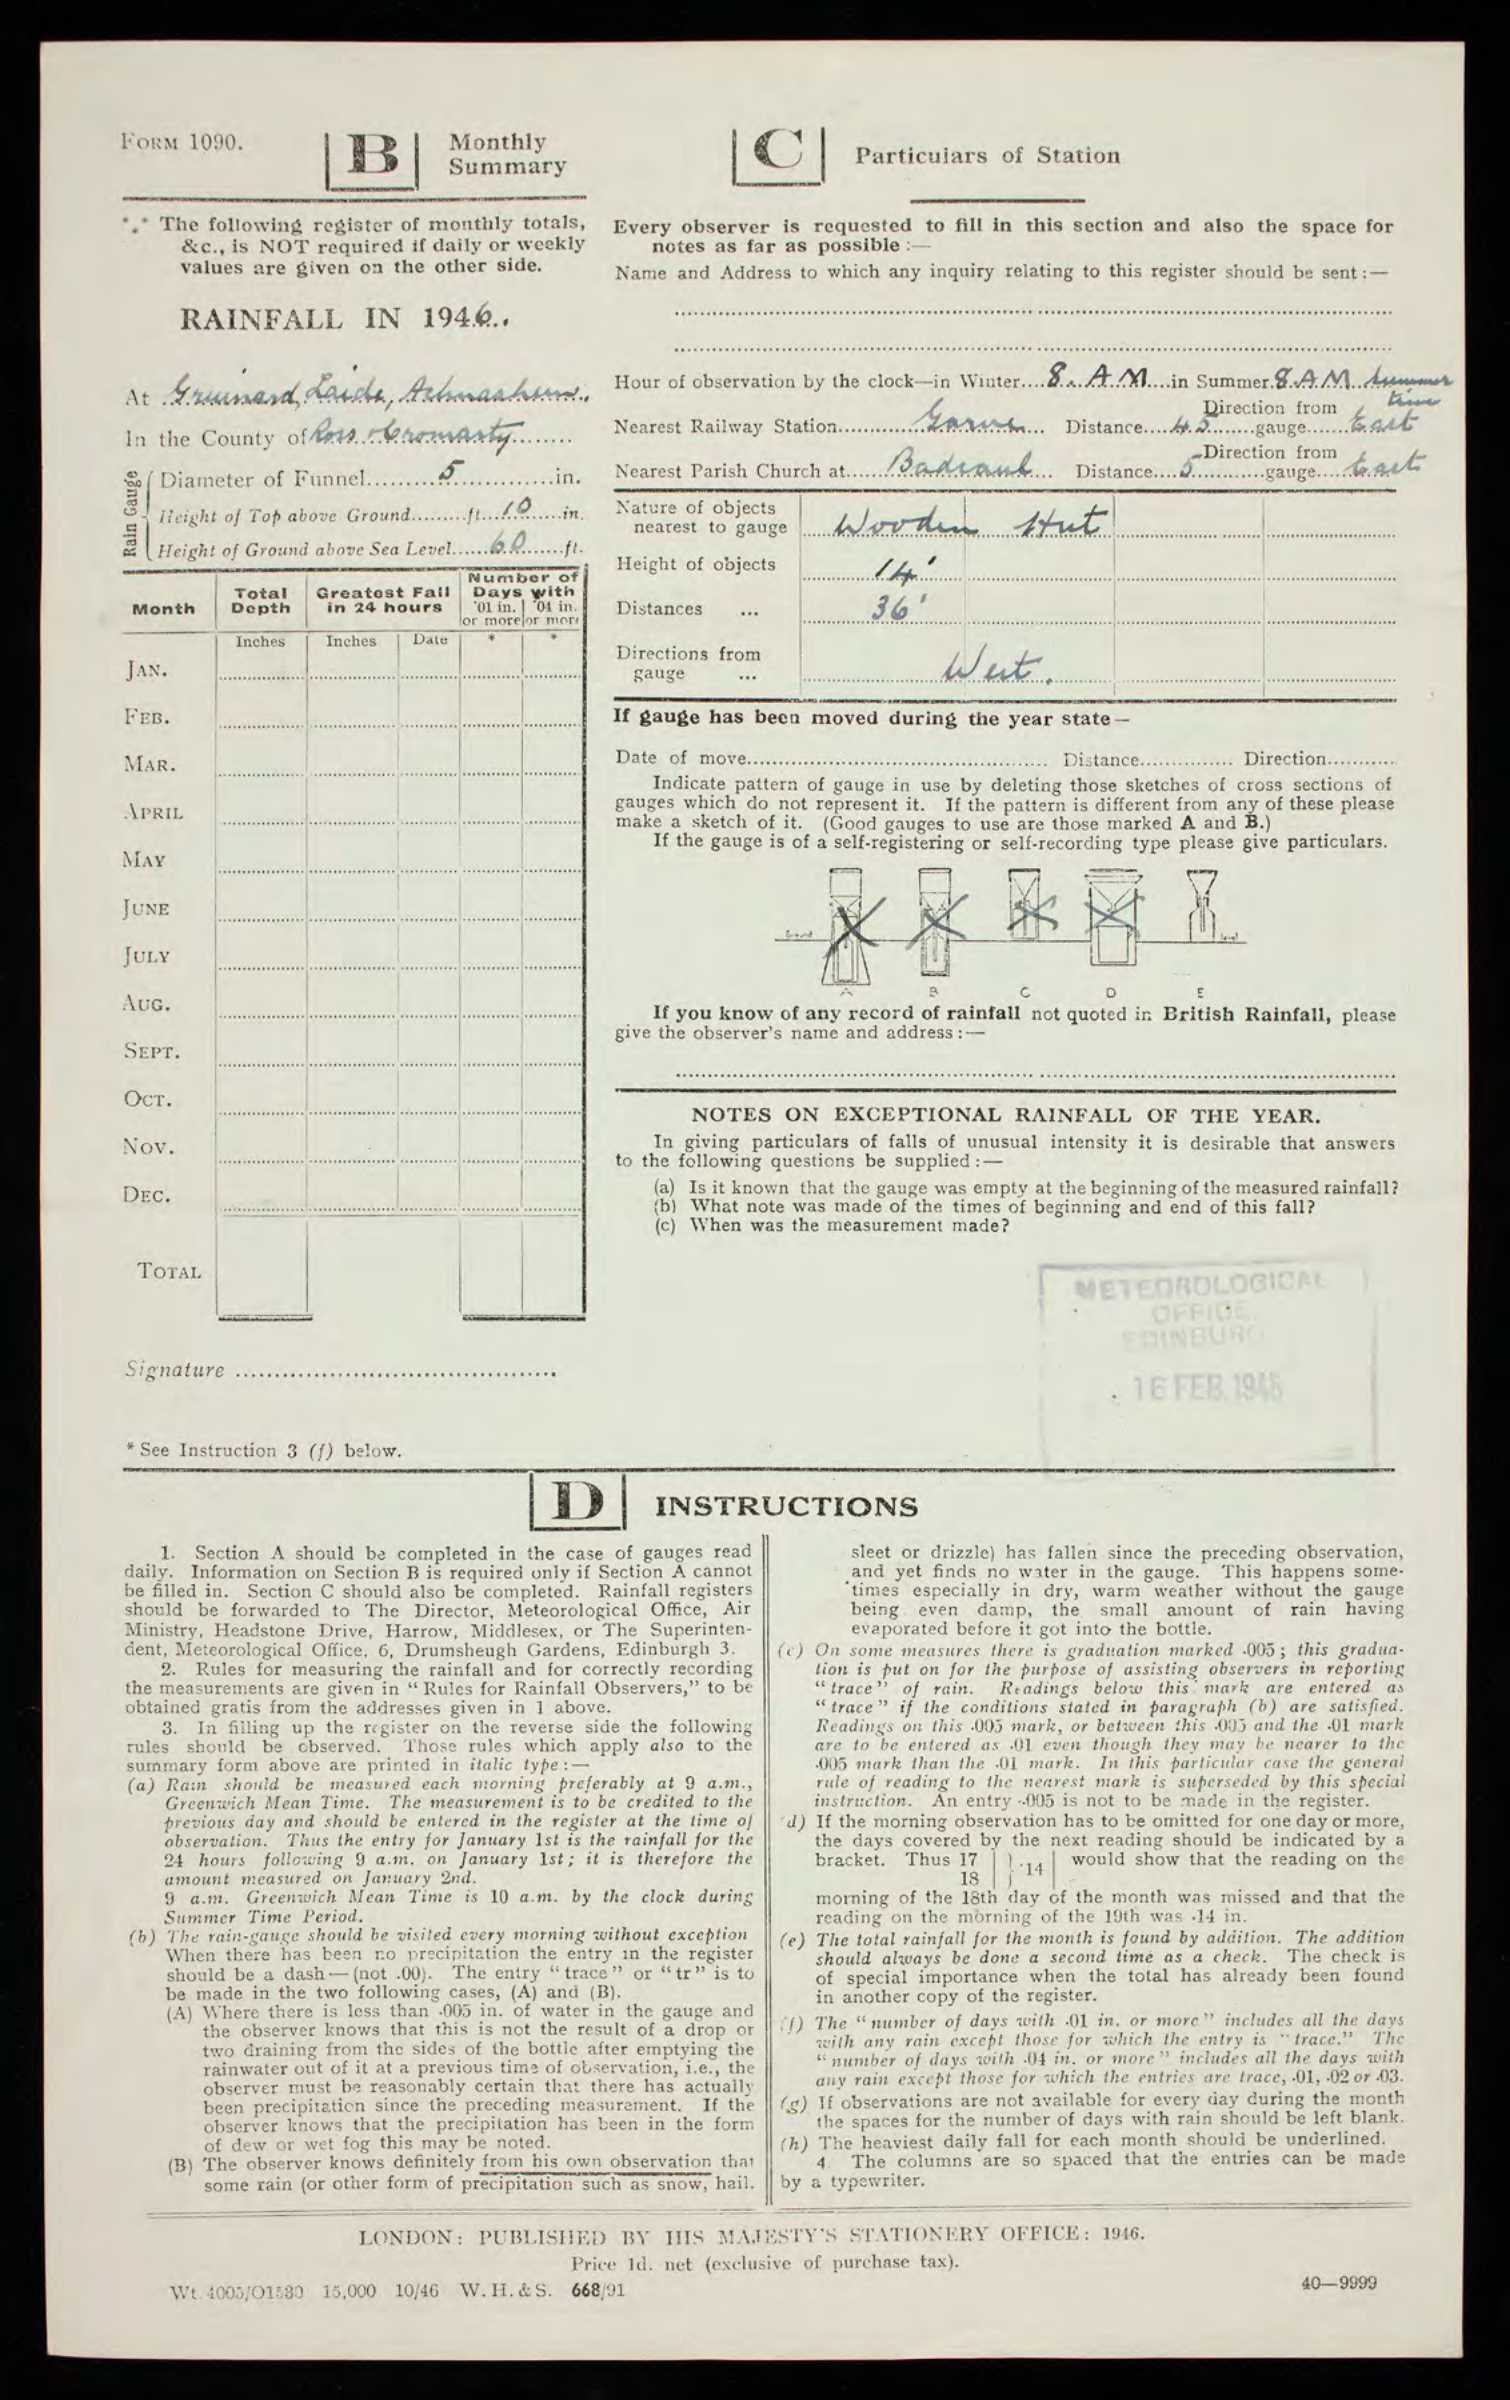 FORM 1090.
B
Monthly
Summary
*⁎* The following register of monthly totals,
&c., is NOT required if daily or weekly
values are given on the other side.
RAINFALL IN 1946..
At Gruinard, Laide, Achnasheen.
In the County of Ross & Cromarty
Rain Gauge
Diameter of Funnel 5 in.
Height of Top above Ground ft. 10 in.
Height of Ground above Sea Level 60 ft.
Month
Total Depth
Greatest Fall in 24 hours
Number of Days with
·01 in. or more
·04 in. or more
Inches Inches Date * *
JAN.
FEB.
MAR.
APRIL
MAY
JUNE
JULY
AUG.
SEPT.
OCT.
NOV.
DEC.
TOTAL
Signature
* See Instruction 3 (f) below.
C
Particulars of Station
Every observer is requested to fill in this section and also the space for
notes as far as possible :—
Name and Address to which any inquiry relating to this register should be sent :—
Hour of observation by the clock—in Winter 8. A.M. in Summer 8 A.M. Summer time
Nearest Railway Station Garve Distance 45 Direction from gauge East
Nearest Parish Church at Badcaul Distance 5 Direction from gauge East
Nature of objects
nearest to gauge Wooden Hut
Height of objects 14'
Distances ... 36'
Directions from
gauge ... West.
If gauge has been moved during the year state—
Date of move Distance Direction
Indicate pattern of gauge in use by deleting those sketches of cross sections of
gauges which do not represent it. If the pattern is different from any of these please
make a sketch of it. (Good gauges to use are those marked A and B.)
If the gauge is of a self-registering or self-recording type please give particulars.
Ground Level
A B C D E
If you know of any record of rainfall not quoted in British Rainfall, please
give the observer's name and address :—
NOTES ON EXCEPTIONAL RAINFALL OF THE YEAR.
In giving particulars of falls of unusual intensity it is desirable that answers
to the following questions be supplied :—
(a) Is it known that the gauge was empty at the beginning of the measured rainfall?
(b) What note was made of the times of beginning and end of this fall?
(c) When was the measurement made?
METEOROLOGICAL
OFFICE
EDINBURG
16 FEB. 194
D
INSTRUCTIONS
1. Section A should be completed in the case of gauges read
daily. Information on Section B is required only if Section A cannot
be filled in. Section C should also be completed. Rainfall registers
should be forwarded to The Director, Meteorological Office, Air
Ministry, Headstone Drive, Harrow, Middlesex, or The Superinten-
dent, Meteorological Office, 6, Drumsheugh Gardens, Edinburgh 3.
2. Rules for measuring the rainfall and for correctly recording
the measurements are given in “ Rules for Rainfall Observers,” to be
obtained gratis from the addresses given in 1 above.
3. In filling up the register on the reverse side the following
rules should be observed. Those rules which apply also to the
summary form above are printed in italic type :—
(a) Rain should be measured each morning preferably at 9 a.m.,
Greenwich Mean Time. The measurement is to be credited to the
previous day and should be entered in the register at the time of
observation. Thus the entry for January 1st is the rainfall for the
24 hours following 9 a.m. on January 1st; it is therefore the
amount measured on January 2nd.
9 a.m. Greenwich Mean Time is 10 a.m. by the clock during
Summer Time Period.
(b) The rain-gauge should be visited every morning without exception
When there has been no precipitation the entry in the register
should be a dash—(not .00). The entry “ trace ” or “ tr ” is to
be made in the two following cases, (A) and (B).
(A) Where there is less than ·005 in. of water in the gauge and
the observer knows that this is not the result of a drop or
two draining from the sides of the bottle after emptying the
rainwater out of it at a previous time of observation, i.e., the
observer must be reasonably certain that there has actually
been precipitation since the preceding measurement. If the
observer knows that the precipitation has been in the form
of dew or wet fog this may be noted.
(B) The observer knows definitely from his own observation that
some rain (or other form of precipitation such as snow, hail.
sleet or drizzle) has fallen since the preceding observation,
and yet finds no water in the gauge. This happens some-
times especially in dry, warm weather without the gauge
being even damp, the small amount of rain having
evaporated before it got into the bottle.
(c) On some measures there is graduation marked ·005 ; this gradua-
tion is put on for the purpose of assisting observers in reporting
“ trace ” of rain. Readings below this mark are entered as
“ trace ” if the conditions stated in paragraph (b) are satisfied.
Readings on this ·005 mark, or between this ·005 and the ·01 mark
are to be entered as ·01 even though they may be nearer to the
·005 mark than the ·01 mark. In this particular case the general
rule of reading to the nearest mark is superseded by this special
instruction. An entry ·005 is not to be made in the register.
(d) If the morning observation has to be omitted for one day or more,
the days covered by the next reading should be indicated by a
bracket. Thus 17 | } ·14 | would show that the reading on the
18
morning of the 18th day of the month was missed and that the
reading on the morning of the 19th was ·14 in.
(e) The total rainfall for the month is found by addition. The addition
should always be done a second time as a check. The check is
of special importance when the total has already been found
in another copy of the register.
(f) The “ number of days with ·01 in. or more ” includes all the days
with any rain except those for which the entry is “ trace.” The
“ number of days with ·04 in. or more ” includes all the days with
any rain except those for which the entries are trace, ·01, ·02 or ·03.
(g) If observations are not available for every day during the month
the spaces for the number of days with rain should be left blank.
(h) The heaviest daily fall for each month should be underlined.
4. The columns are so spaced that the entries can be made
by a typewriter.
LONDON: PUBLISHED BY HIS MAJESTY'S STATIONERY OFFICE: 1946.
Price 1d. net (exclusive of purchase tax).
Wt. 4005/O1530 15,000 10/46 W. H. & S. 668/91
40—9999